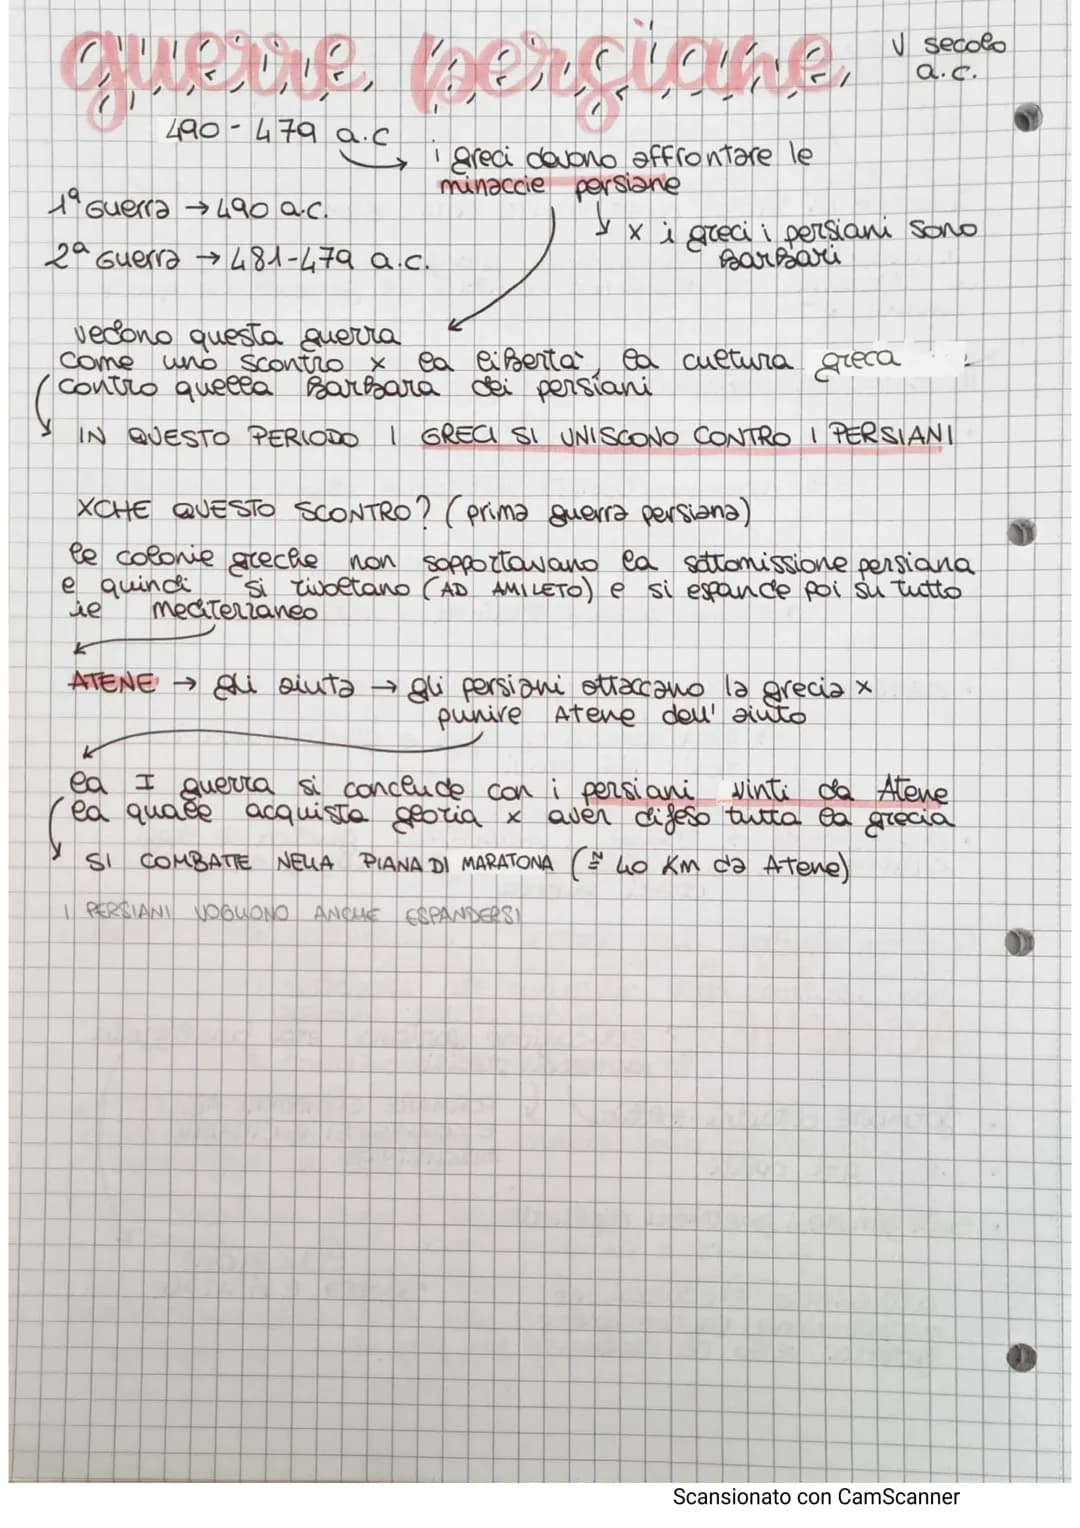 guerre persiane
V secolo
a.c.
490-479 a.c
i greci devono affrontare le
minaccie persiane
1ª Guerra → 490 a.c.
x i greci i persiani sono
Barbari
2ª Guerra → 481-479 a.c.
vedono questa guerra
come uno scontro x la libertà, la cultura greca
contro quella Barbara dei persiani
IN QUESTO PERIODO I GRECI SI UNISCONO CONTRO I PERSIANI
XCHE QUESTO SCONTRO? (prima guerra persiana)
le colonie greche non sopportavano la sottomissione persiana
e quindi si rivoltano (AD AMILETO) e si espande poi su tutto
il mediterraneo
ATENE → gli aiuta → gli persiani attaccano la grecia x
punire Atene dell' aiuto
la I guerra si conclude con i persiani vinti da Atene
la quale acquista gloria x aver difeso tutta la grecia
SI COMBATTE NELLA PIANA DI MARATONA (≅ 40 Km da Atene)
I PERSIANI VOGLIONO ANCHE ESPANDERSI
Scansionato con CamScanner